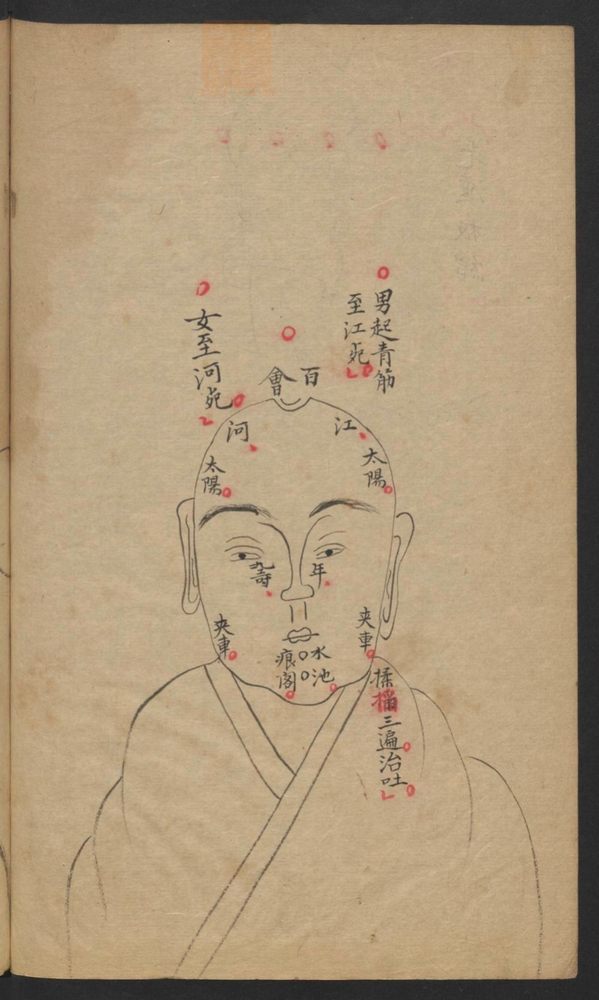 男起青筋
至江宛
百會
女至河宛
江
河
太陽
太陽
年
壽
夾車
夾車
水池
痕閣
揉搯三遍治吐